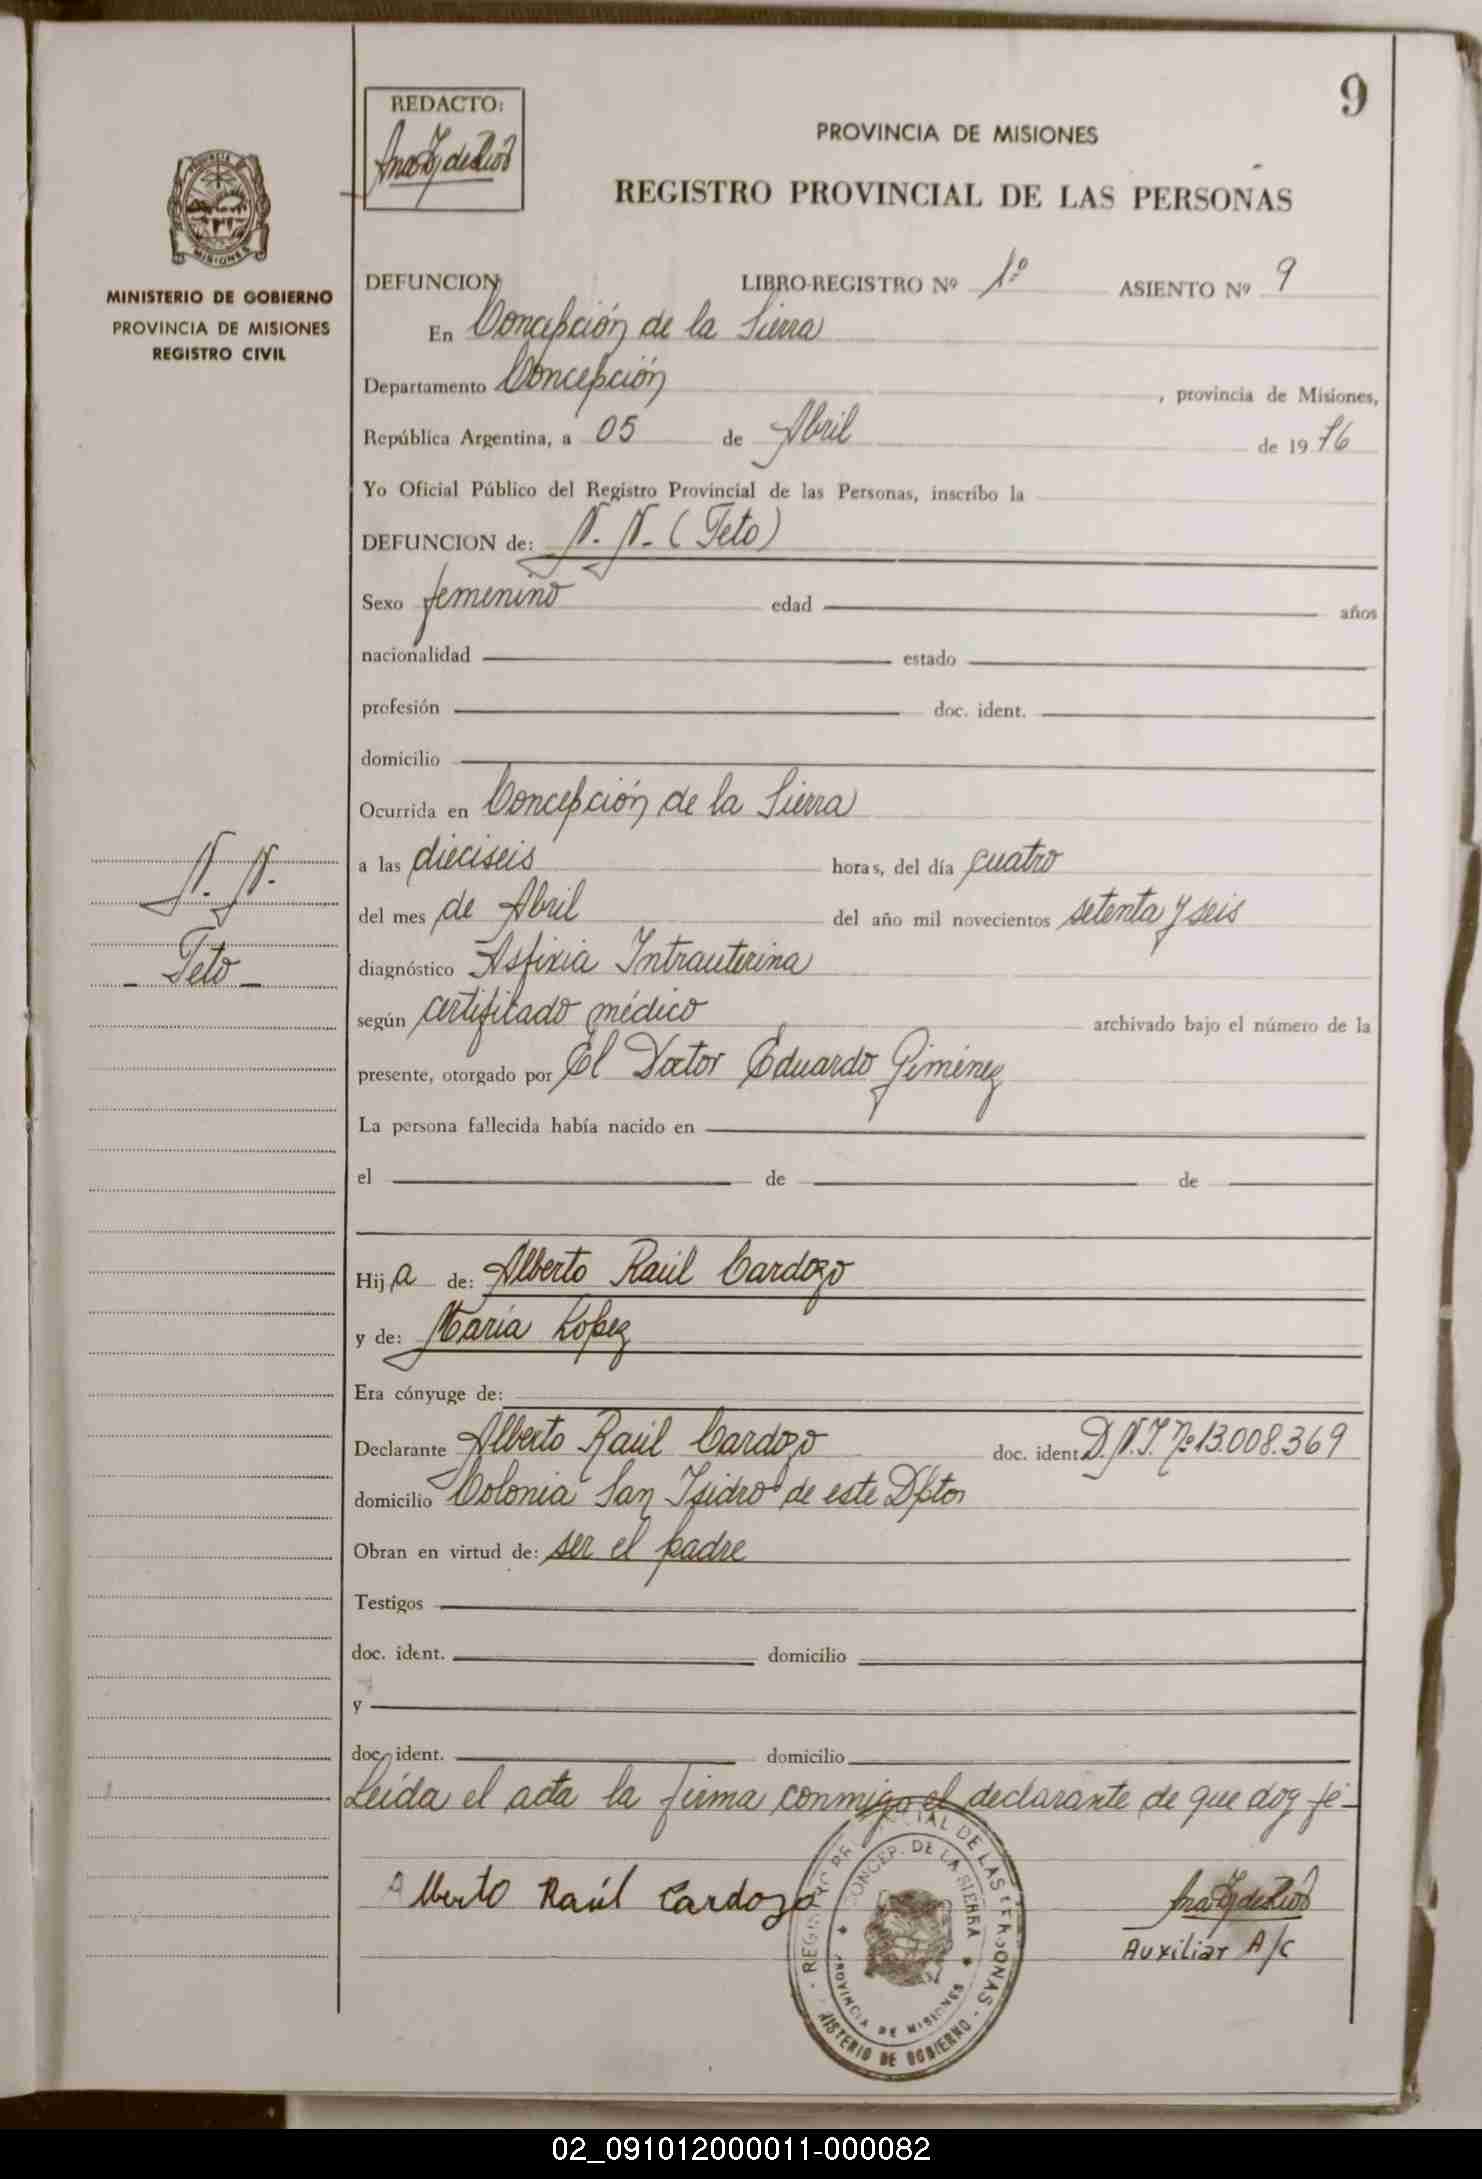 9
REDACTO:
PROVINCIA DE MISIONES
REGISTRO PROVINCIAL DE LAS PERSONAS
MISIONES
MINISTERIO DE GOBIERNO
PROVINCIA DE MISIONES
REGISTRO CIVIL
DEFUNCION LIBRO-REGISTRO Nº 1º ASIENTO Nº 9
En Concepción de la Sierra
Departamento Concepción , provincia de Misiones,
República Argentina, a 05 de Abril de 1976
Yo Oficial Público del Registro Provincial de las Personas, inscribo la
DEFUNCION de: N. N. (Feto)
Sexo femenino edad años
nacionalidad estado
profesión doc. ident.
domicilio
Ocurrida en Concepción de la Sierra
a las dieciseis horas, del día cuatro
del mes de Abril del año mil novecientos setenta y seis
diagnóstico Asfixia Intrauterina
según certificado médico archivado bajo el número de la
presente, otorgado por El Doctor Eduardo Giménez
La persona fallecida había nacido en
el de de
N. N.
- Feto -
Hija de: Alberto Raúl Cardozo
y de: María López
Era cónyuge de:
Declarante Alberto Raúl Cardozo doc. ident. D.N.I. Nº 13.008.369
domicilio Colonia San Isidro de este Dpto
Obran en virtud de: ser el padre
Testigos
doc. ident. domicilio
y
doc. ident. domicilio
Leída el acta la firma conmigo el declarante de que doy fé-
Alberto Raúl Cardozo
Auxiliar A/C
CONCEP. DE LA SIERRA
PROVINCIA DE MISIONES
02_091012000011-000082